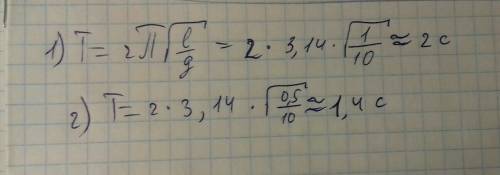 1) T = 2П√(l/g) = 2 · 3,14 · √(1/10) ≈ 2 с
2) T = 2 · 3,14 · √(0,5/10) ≈ 1,4 с